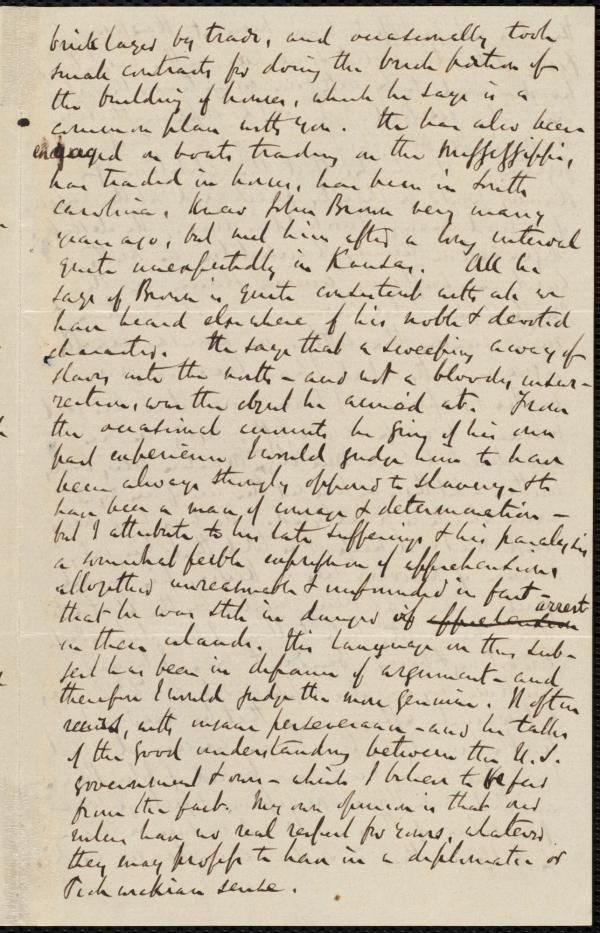 bricklayer by trade, and occasionally took
small contracts for doing the brick portion of
the building of houses, which he says is a
common plan with you. He has also been
engaged on boats trading on the Mississippi,
has traded in horses, has been in South
Carolina, knew John Brown very many
years ago, but met him after a long interval
quite unexpectedly in Kansas. All he
says of Brown is quite consistent with all we
have heard elsewhere of his noble & devoted
character. He says that a sweeping away of
slaves into the north - and not a bloody insur-
rection, was the object he aimed at. From
the occasional accounts he gives of his own
past experience I would judge him to have
been always strongly opposed to slavery - & to
have been a man of courage & determination -
but I attribute to his late sufferings & his paralysis
a somewhat feeble expression of apprehensions
altogether unreasonable & unfounded in fact -
that he was still in danger of apprehension arrest
in these islands. His language on this sub-
ject has been in defiance of argument - and
therefore I would judge the more genuine. It often
recurs, with insane perseverance - and he talks
of the good understanding between the U.S.
government & ours - which I believe to be far
from the fact. My own opinion is that our
rulers have no real respect for yours, whatever
they may profess to have in a diplomatic or
Pickwickian sense.